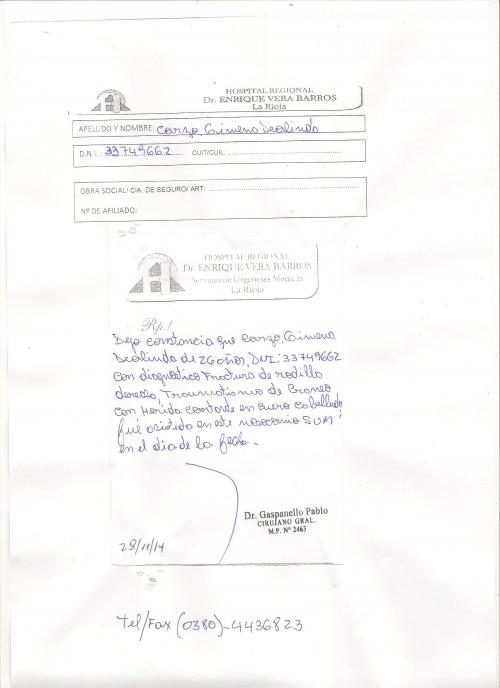 HOSPITAL REGIONAL
Dr. ENRIQUE VERA BARROS
La Rioja
APELLIDO Y NOMBRE: Carzo, Gimena Deolinda
D.N.I.: 33749662 CUIT/CUIL:
OBRA SOCIAL/ CIA. DE SEGURO/ ART:
Nº DE AFILIADO:
HOSPITAL REGIONAL
Dr. ENRIQUE VERA BARROS
Servicio de Urgencias Médicas
La Rioja
Rp./
Dejo constancia que Carzo, Gimena
Deolinda de 26 años, DNI: 33749662
con diagnostico Fractura de rodilla
derecha, Traumatismo de Craneo
con herida cortante en cuero cabelludo
fué asistida en este nosocomio SUM
en el dia de la fecha.-
Dr. Gaspanello Pablo
CIRUJANO GRAL.
M.P. Nº 2463
29/11/14
Tel/Fax (0380)-4436823